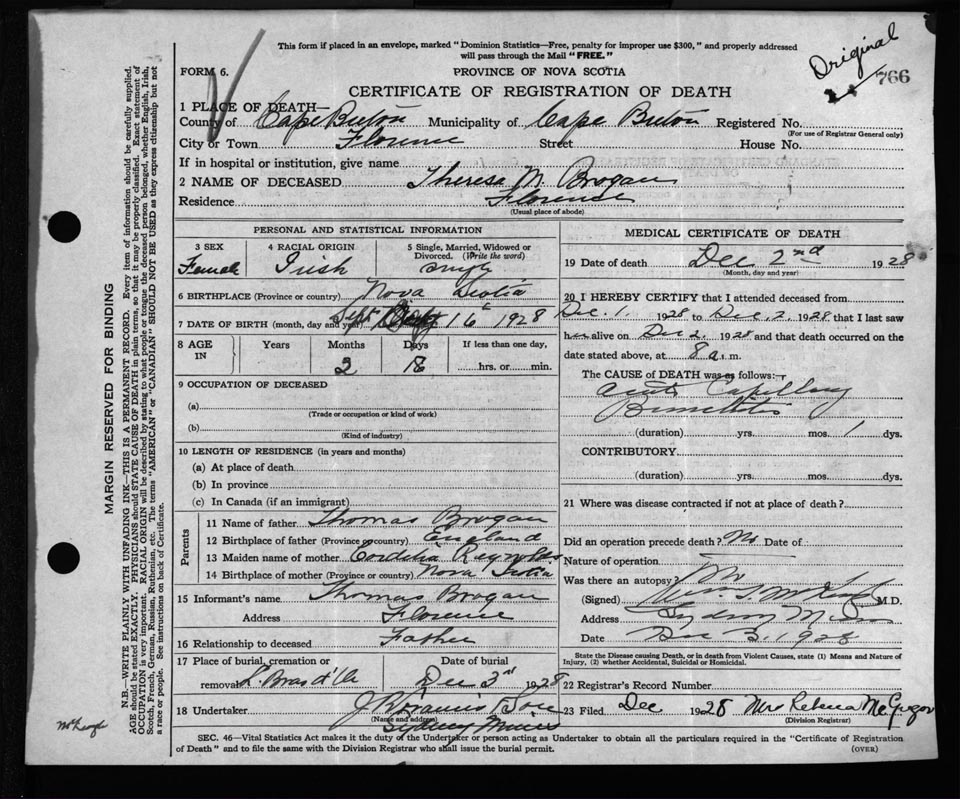 This form if placed in an envelope, marked "Dominion Statistics—Free, penalty for improper use $300," and properly addressed
will pass through the Mail "FREE."
Original
766
FORM 6.
PROVINCE OF NOVA SCOTIA
CERTIFICATE OF REGISTRATION OF DEATH
1 PLACE OF DEATH—
County of Cape Breton Municipality of Cape Breton Registered No.
(For use of Registrar General only)
City or Town Florence Street House No.
If in hospital or institution, give name
2 NAME OF DECEASED Theresa M. Brogan
Residence Florence
(Usual place of abode)
PERSONAL AND STATISTICAL INFORMATION
3 SEX Female
4 RACIAL ORIGIN Irish
5 Single, Married, Widowed or
Divorced. (Write the word)
single
6 BIRTHPLACE (Province or country) Nova Scotia
7 DATE OF BIRTH (month, day and year) Sept 16 1928
8 AGE IN
Years Months Days If less than one day,
2 hrs. or min.
9 OCCUPATION OF DECEASED
(a)
(Trade or occupation or kind of work)
(b)
(Kind of industry)
10 LENGTH OF RESIDENCE (in years and months)
(a) At place of death
(b) In province
(c) In Canada (if an immigrant)
Parents
11 Name of father Thomas Brogan
12 Birthplace of father (Province or country) England
13 Maiden name of mother Cordelia Reynolds
14 Birthplace of mother (Province or country) Nova Scotia
15 Informant's name Thomas Brogan
Address Florence
16 Relationship to deceased Father
17 Place of burial, cremation or
removal L. Bras d'Or
Date of burial
Dec 3rd 1928
18 Undertaker Son
(Name and address)
Sydney Mines
MEDICAL CERTIFICATE OF DEATH
19 Date of death Dec 2nd 1928
(Month, day and year)
20 I HEREBY CERTIFY that I attended deceased from
Dec. 1 1928 to Dec. 2. 1928 that I last saw
her alive on Dec 2. 1928 and that death occurred on the
date stated above, at 8 a. m.
The CAUSE of DEATH was as follows:—
Acute Capillary
Bronchitis
(duration) yrs. mos. 1 dys.
CONTRIBUTORY
(duration) yrs. mos. dys.
21 Where was disease contracted if not at place of death?
Did an operation precede death? No Date of
Nature of operation
Was there an autopsy? No
(Signed) M.D.
Address Sydney Mines
Date Dec 3. 1928
State the Disease causing Death, or in death from Violent Causes, state (1) Means and Nature of
Injury, (2) whether Accidental, Suicidal or Homicidal.
22 Registrar's Record Number
23 Filed Dec 1928 Mrs Rebecca McGregor
(Division Registrar)
SEC. 46—Vital Statistics Act makes it the duty of the Undertaker or person acting as Undertaker to obtain all the particulars required in the "Certificate of Registration
of Death" and to file the same with the Division Registrar who shall issue the burial permit.
(OVER)
MARGIN RESERVED FOR BINDING
N.B.—WRITE PLAINLY WITH UNFADING INK—THIS IS A PERMANENT RECORD. Every item of information should be carefully supplied.
AGE should be stated EXACTLY. PHYSICIANS should STATE CAUSE OF DEATH in plain terms, so that it may be properly classified. Exact statement of
OCCUPATION is very important. RACIAL ORIGIN will be described by stating to what people or tongue the deceased person belonged, whether English, Irish,
Scotch, French, German, Russian, Ruthenian, etc. The terms "AMERICAN" or "CANADIAN" SHOULD NOT BE USED as they express citizenship but not
a race or people. See instructions on back of Certificate.